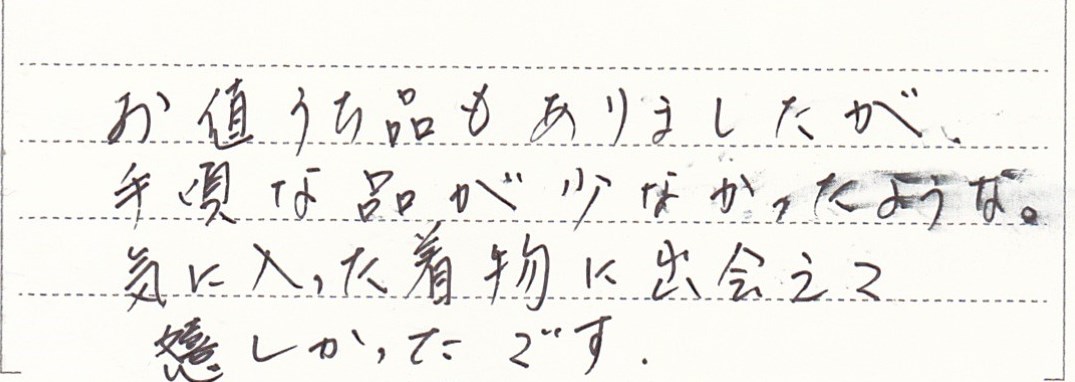 お値うち品もありましたが、
手頃な品が少なかったような。
気に入った着物に出会えて
嬉しかったです.